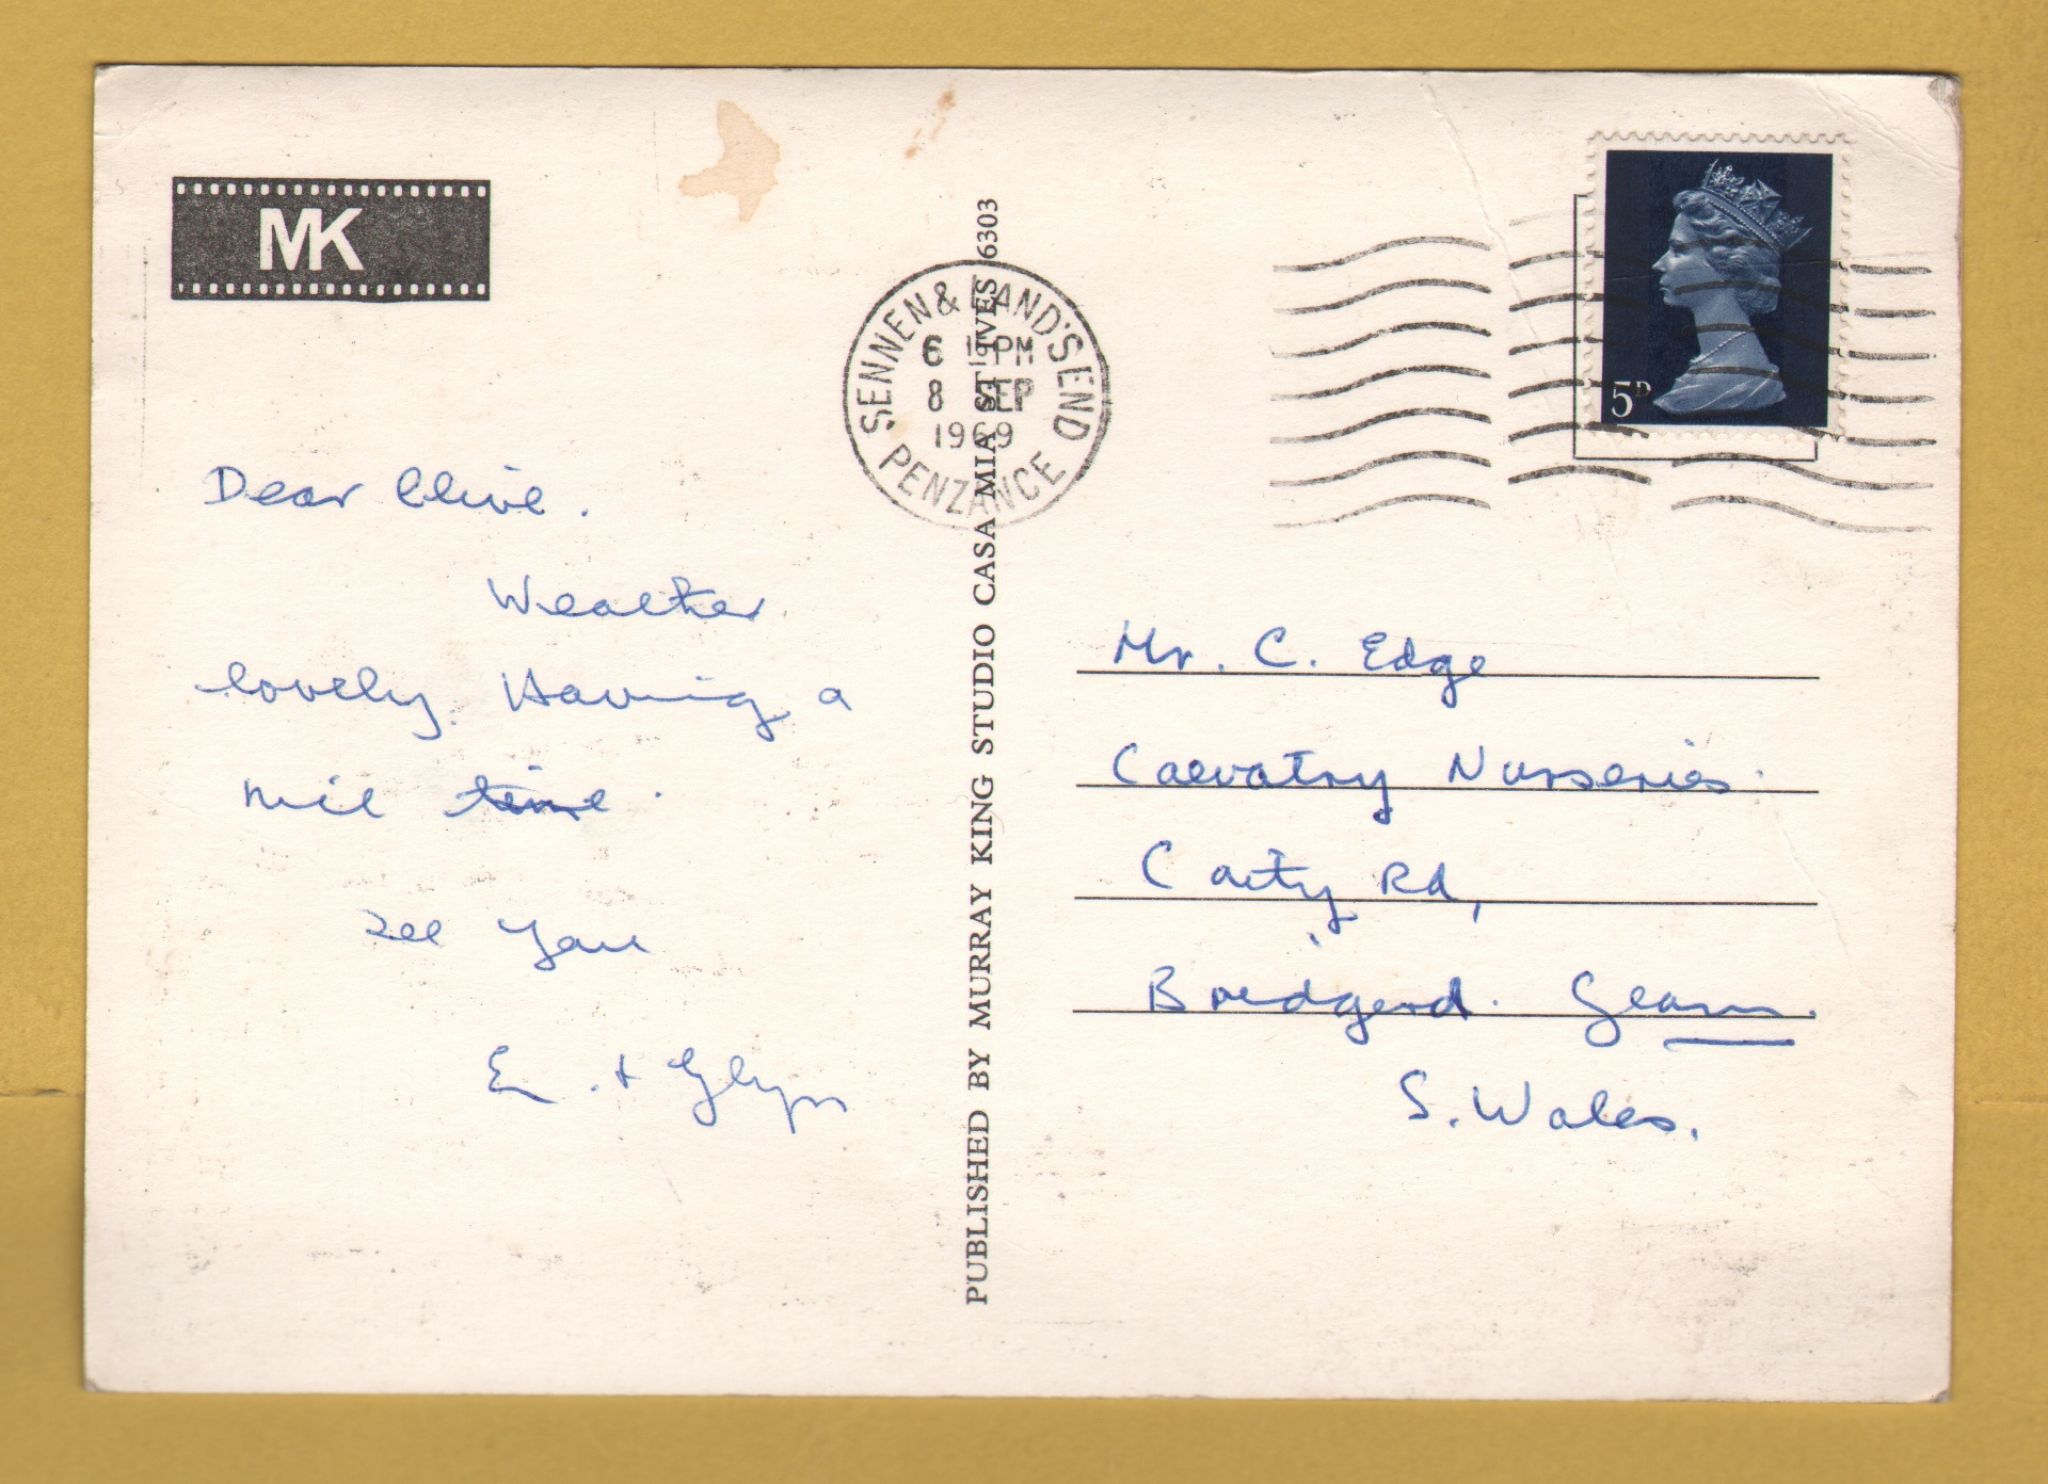 MK
Dear Clive.
Weather
lovely. Having a
nice time.
See you
E. + Glyn
PUBLISHED BY MURRAY KING STUDIO CASA MIA ST IVES 6303
SENNEN & LAND'S END
6 PM
8 SEP
1969
PENZANCE
5D
Mr. C. Edge
Nurseries.
Coity Rd,
Bridgend. Glam.
S. Wales.